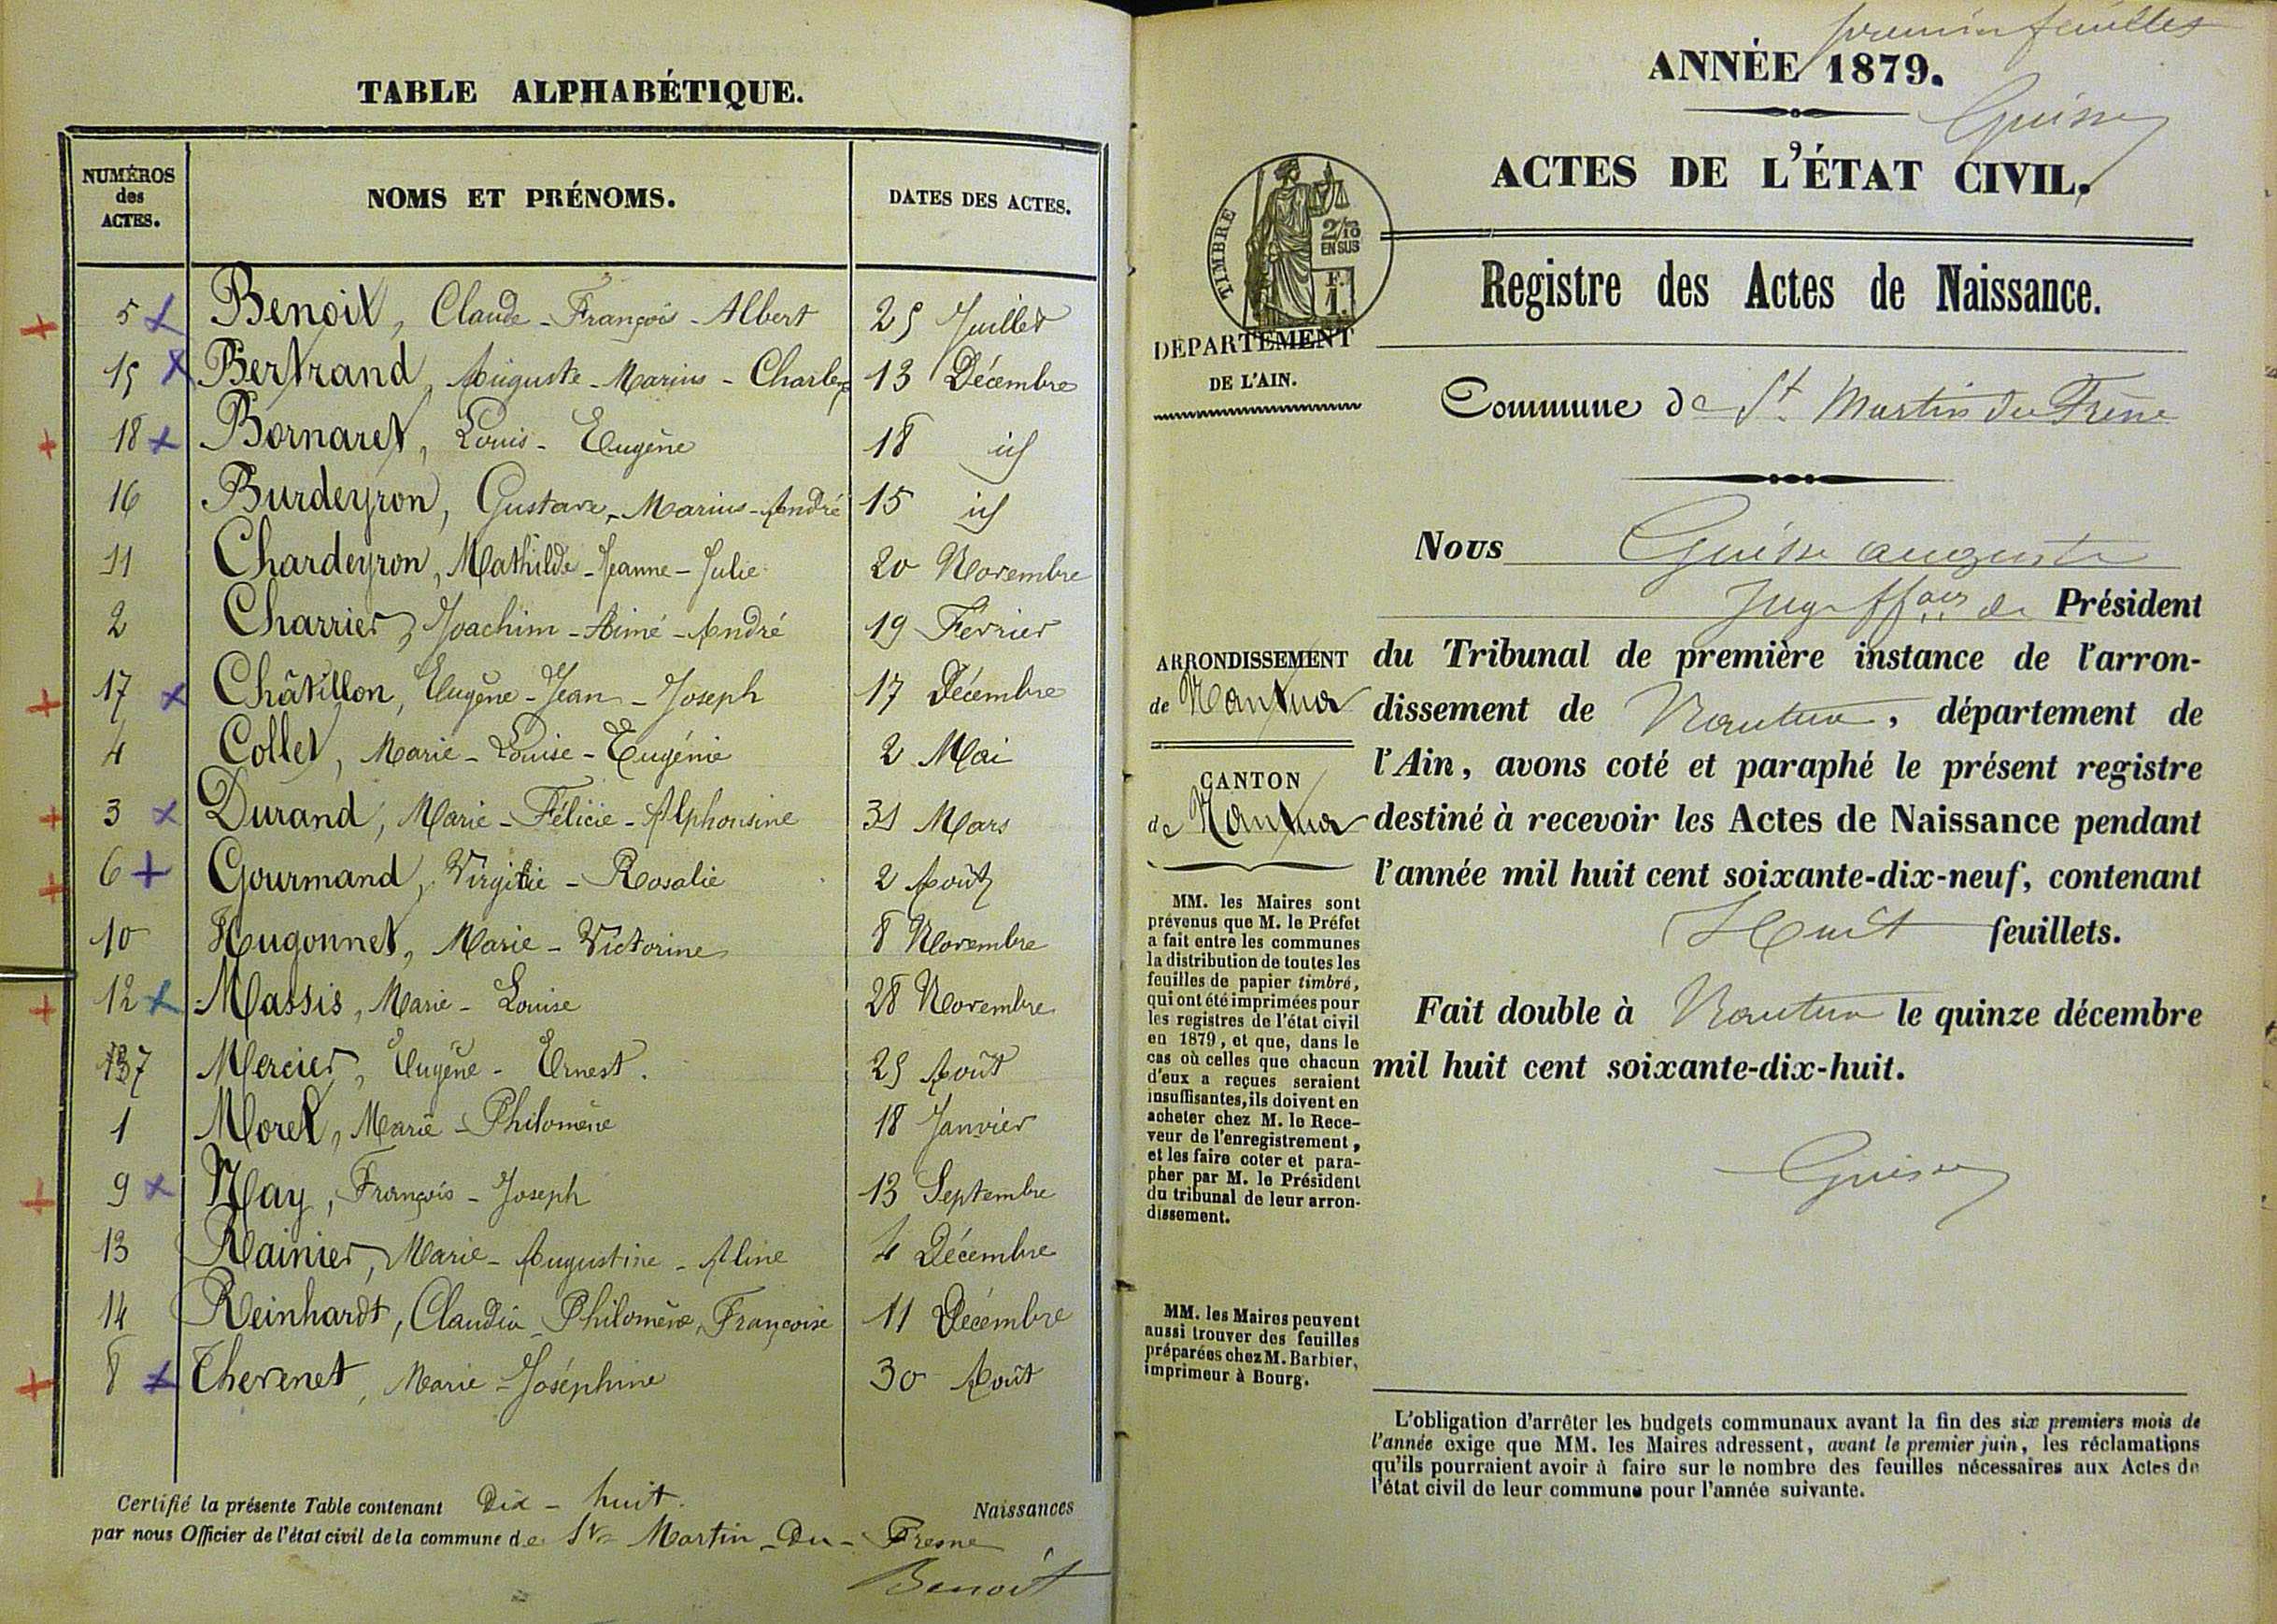 TABLE ALPHABÉTIQUE.
NUMÉROS des ACTES. NOMS ET PRÉNOMS. DATES DES ACTES.
5 Benoit, Claude-François-Albert 25 Juillet
15 Bertrand, Auguste-Marius-Charles 13 Décembre
18 Bornaret, Louis-Eugène 18 id
16 Burdeyron, Gustave-Marius-André 15 id
11 Chardeyron, Mathilde-Jeanne-Julie 20 Novembre
2 Charrier, Joachim-Aimé-André 19 Février
17 Châtillon, Eugène-Jean-Joseph 17 Décembre
4 Collet, Marie-Louise-Eugénie 2 Mai
3 Durand, Marie-Félicie-Alphonsine 31 Mars
6 Gourmand, Virginie-Rosalie 2 Août
10 Hugonnet, Marie-Victorine 8 Novembre
12 Massis, Marie-Louise 28 Novembre
7 Mercier, Eugène-Ernest. 25 Août
1 Morel, Marie-Philomène 18 Janvier
9 Nay, François-Joseph 13 Septembre
13 Rainier, Marie-Augustine-Aline 4 Décembre
14 Reinhardt, Claudia-Philomène-Françoise 11 Décembre
8 Thevenet, Marie-Joséphine 30 Août
Certifié la présente Table contenant Dix-huit. Naissances
par nous Officier de l'état civil de la commune de St Martin-Du-Fresne
Benoit
ANNÉE 1879.
ACTES DE L'ÉTAT CIVIL.
TIMBRE
2/10
EN SUS
F.
1.
Registre des Actes de Naissance.
DÉPARTEMENT
DE L'AIN.
Commune de St Martin du Frêne
Nous Guisse auguste
Président
du Tribunal de première instance de l'arron-
dissement de Nantua, département de
l'Ain, avons coté et paraphé le présent registre
destiné à recevoir les Actes de Naissance pendant
l'année mil huit cent soixante-dix-neuf, contenant
Huit feuillets.
Fait double à Nantua le quinze décembre
mil huit cent soixante-dix-huit.
ARRONDISSEMENT
de Nantua
CANTON
de Nantua
MM. les Maires sont
prévenus que M. le Préfet
a fait entre les communes
la distribution de toutes les
feuilles de papier timbré,
qui ont été imprimées pour
les registres de l'état civil
en 1879, et que, dans le
cas où celles que chacun
d'eux a reçues seraient
insuffisantes, ils doivent en
acheter chez M. le Rece-
veur de l'enregistrement,
et les faire coter et para-
pher par M. le Président
du tribunal de leur arron-
dissement.
MM. les Maires peuvent
aussi trouver des feuilles
préparées chez M. Barbier,
imprimeur à Bourg.
L'obligation d'arrêter les budgets communaux avant la fin des six premiers mois de
l'année exige que MM. les Maires adressent, avant le premier juin, les réclamations
qu'ils pourraient avoir à faire sur le nombre des feuilles nécessaires aux Actes de
l'état civil de leur commune pour l'année suivante.